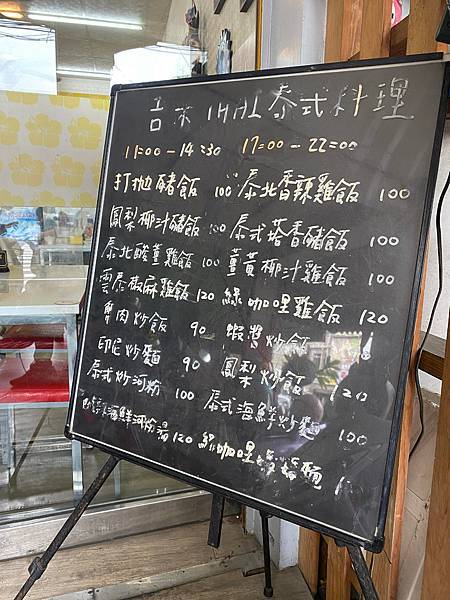 泰式料理
11:00-14:30 17:00-22:00
打拋豬飯 100 泰北香辣雞飯 100
鳳梨椰汁豬飯 100 泰式塔香豬飯 100
泰北酸薑雞飯 100 薑黃椰汁雞飯 100
雲泰椒麻雞飯 120 綠咖哩雞飯 120
肉炒飯 90 蝦醬炒飯
印尼炒麵 90 鳳梨炒飯 120
泰式炒河粉 100 泰式海鮮炒麵 100
海鮮河粉湯 120 綠咖哩 麵